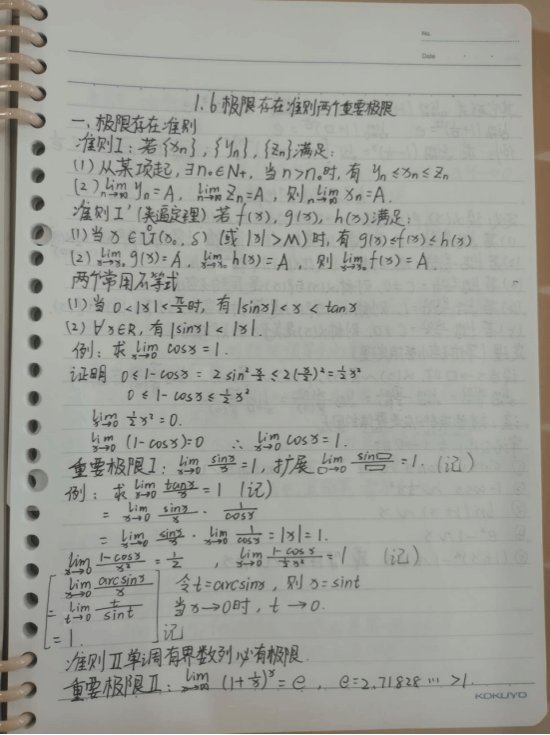 No.
Date
1.6 极限存在准则两个重要极限
一、极限存在准则
准则I:若{xn},{yn},{zn}满足:
(1)从某项起,∃n₀∈N+,当n>n₀时,有 yn≤xn≤zn
(2) lim n→∞ yn=A, lim n→∞ zn=A,则 lim n→∞ xn=A.
准则I'(夹逼定理)若f(x),g(x),h(x)满足:
(1)当x∈Ů(x₀,δ)(或|x|>M)时,有g(x)≤f(x)≤h(x)
(2) lim x→x₀ g(x)=A, lim x→x₀ h(x)=A,则 lim x→x₀ f(x)=A.
两个常用不等式
(1)当0<|x|<π/2时,有|sinx|<x<tanx
(2)∀x∈R,有|sinx|<|x|.
例:求 lim x→0 cosx=1.
证明 0≤1-cosx=2sin²x/2≤2(x/2)²=½x²
0≤1-cosx≤½x²
lim x→0 ½x²=0.
lim x→0 (1-cosx)=0 ∴ lim x→0 cosx=1.
重要极限I: lim x→0 sinx/x=1,扩展 lim □→0 sin□/□=1.(记)
例:求 lim x→0 tanx/x=1 (记)
= lim x→0 sinx/x · 1/cosx
= lim x→0 sinx/x · lim x→0 1/cosx=1x1=1.
lim x→0 1-cosx/x²=1/2 , lim x→0 1-cosx/½x²=1 (记)
lim x→0 arcsinx/x 令t=arcsinx,则x=sint
= lim t→0 t/sint 当x→0时,t→0.
=1 记
准则II单调有界数列必有极限.
重要极限II: lim x→∞ (1+1/x)^x=e, e=2.71828…>1.
KOKUYO